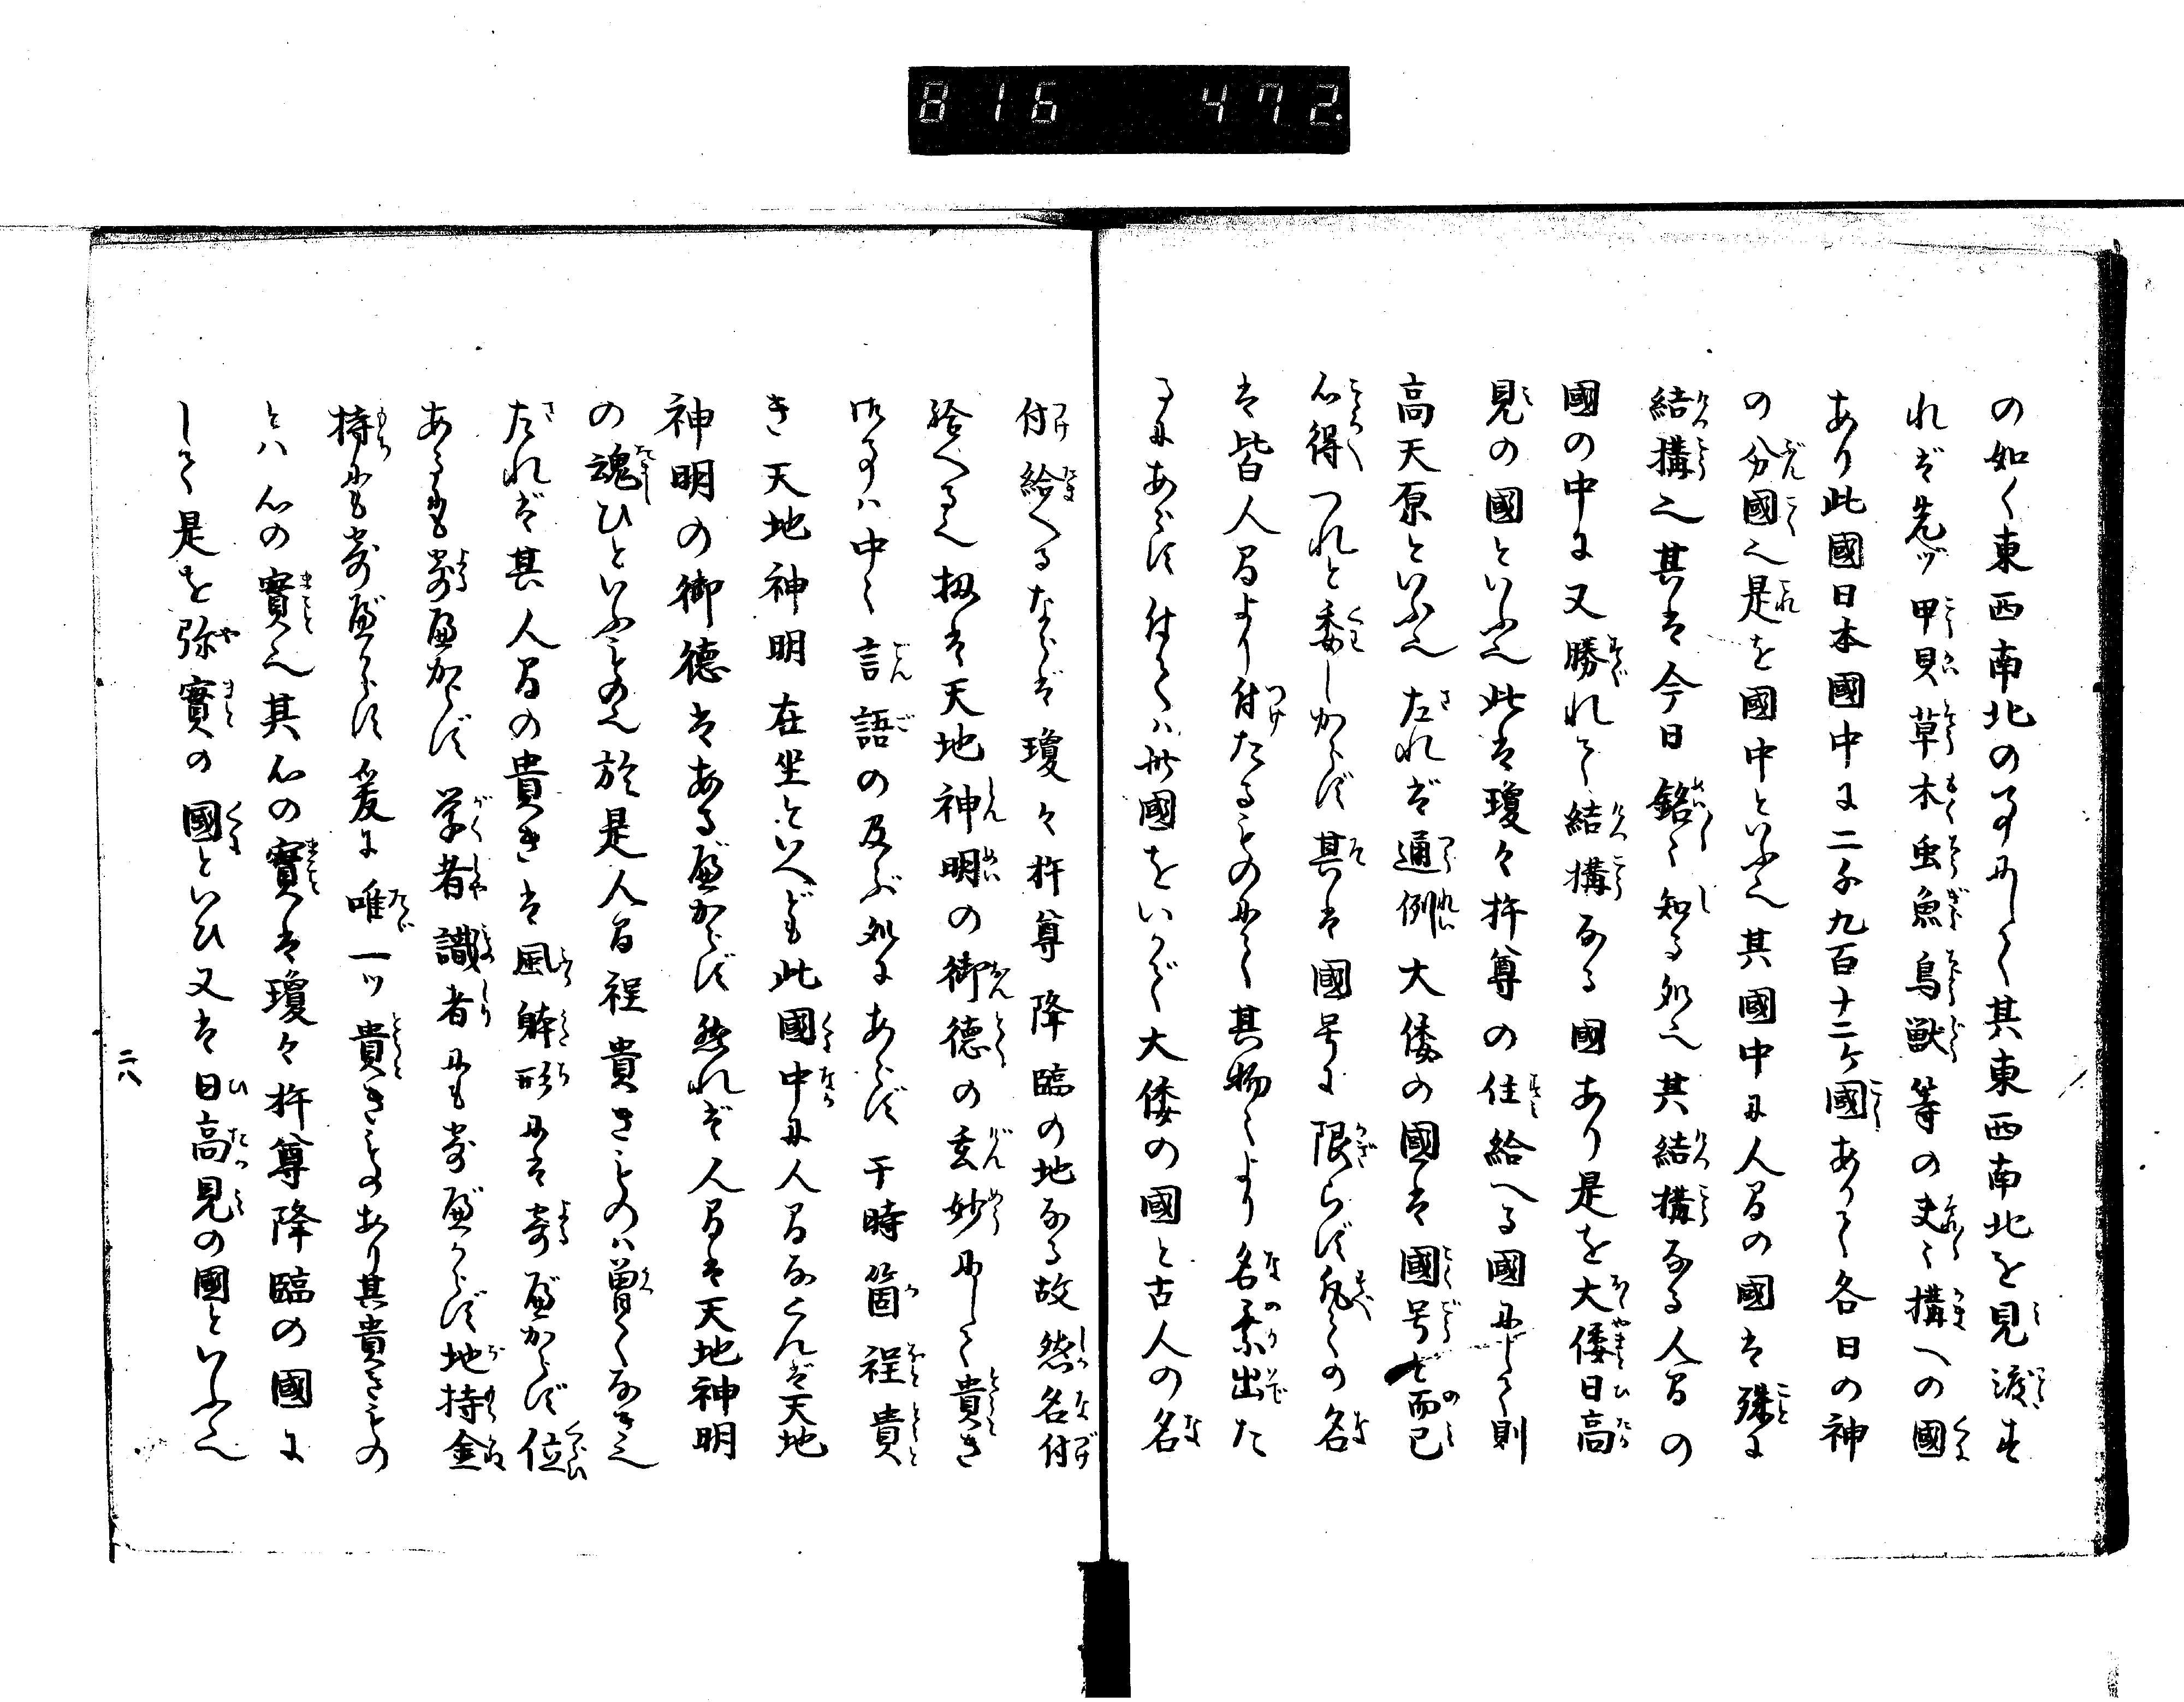 816 472.
の如く東西南北の事にして其東西南北を見渡せ
れば先ッ甲貝草木虫魚鳥獣等の夫〻構への國
あり此國日本國中に二千九百十二ケ國ありて各日の神
の分國也是を國中といふ也其國中に人間の國は殊に
結構也其は今日銘〻知る処也其結構なる人間の
國の中に又勝れて結構なる國あり是を大倭日高
見の國といふ也此は瓊々杵尊の住給へる國にして則
高天原といふ也されば通例大倭の國は國号と而已
心得つれと委しからず其は國号に限らず凡ての名
は皆人間より付たるものにて其物〻より名乗出た
るにあらず付ては此國をいかで大倭の國と古人の名
付給へるならば瓊々杵尊降臨の地なる故然名付
給へる也扨は天地神明の御徳の玄妙にして貴き
御事は中〻言語の及ぶ処にあらず干時箇程貴
き天地神明在坐といへども此國中に人間なくんば天地
神明の御徳はあるべからず然れば人間は天地神明
の魂ひといふもの也於是人間程貴きものは曽てなき也
されば其人間の貴きは風躰形には寄べからず位
あるにも寄べからず学者識者にも寄べからず地持金
持にも寄べからず爰に唯一ッ貴きものあり其貴きもの
とは心の實也其心の實は瓊々杵尊降臨の國に
して是を弥實の國といひ又は日高見の國といふ也
二八